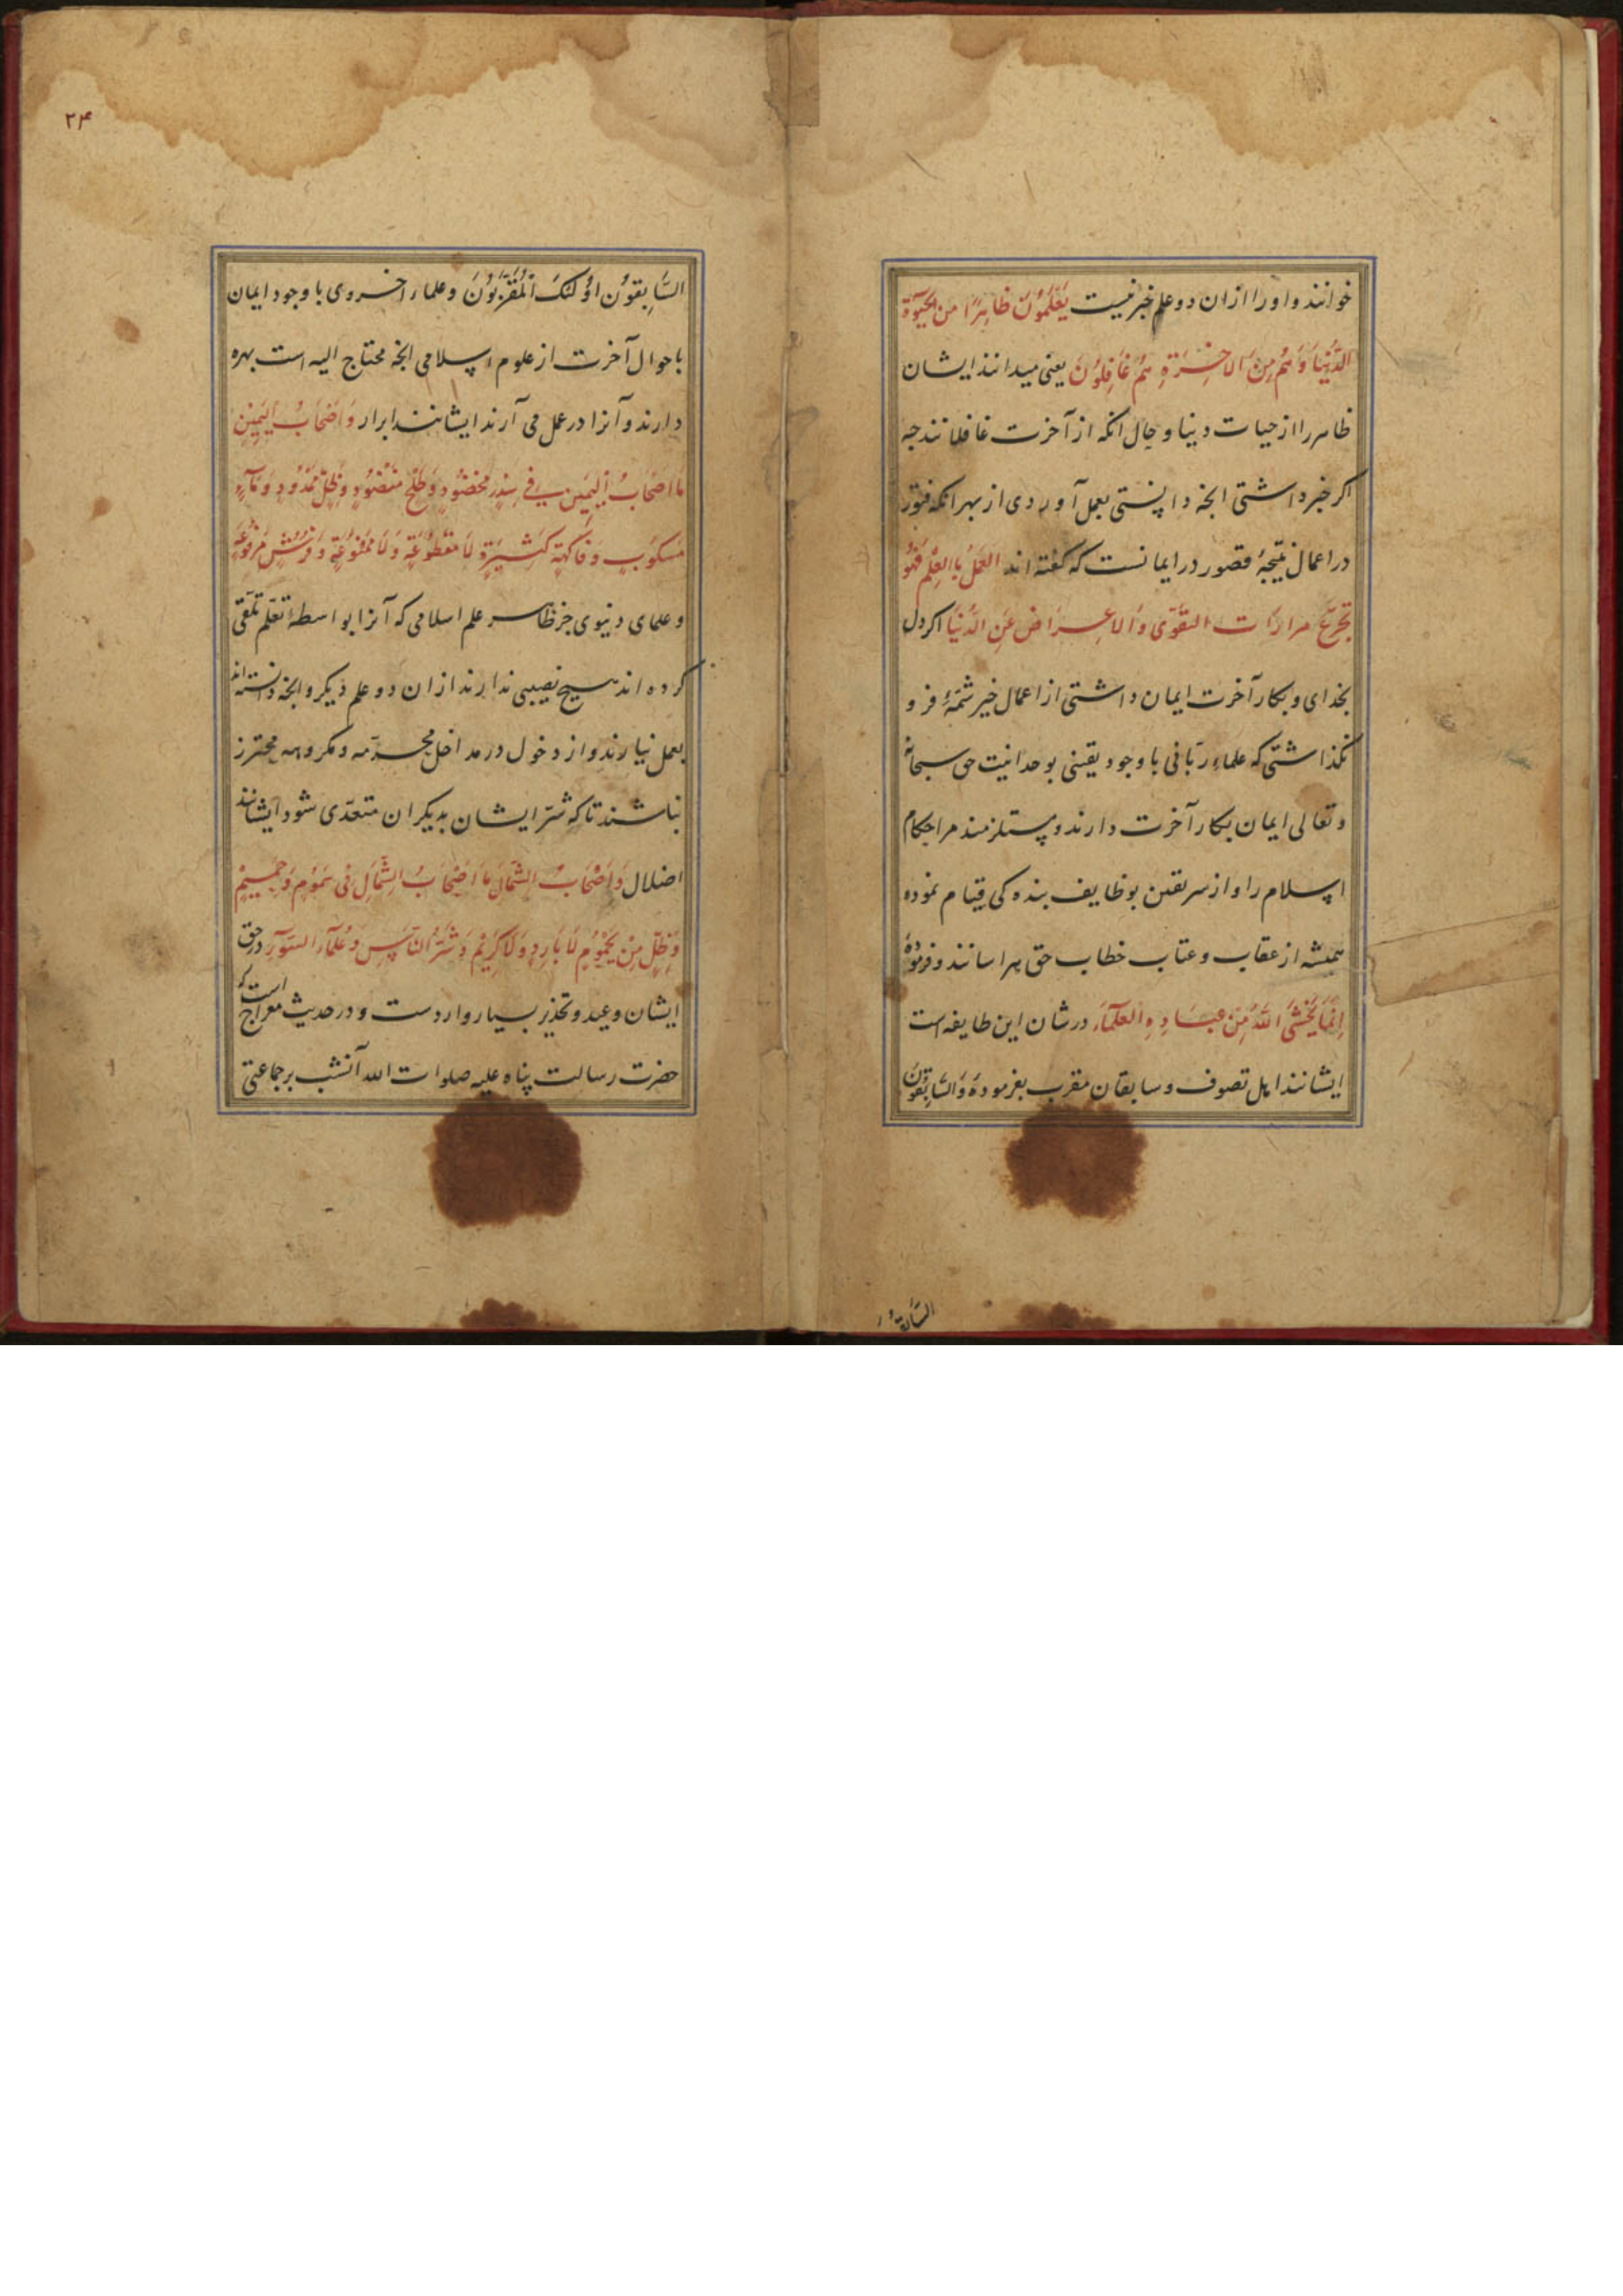 خوانند و او را ازان دو علم خبر نیست یَعْلَمُونَ ظاهِرًا مِنَ الْحَیٰوةِ
الدُّنْیَا وَهُمْ مِنَ الاخِرَةِ هُمْ غَافِلُونَ یعنی میدانند ایشان
ظاهر را از حیات دنیا و حال انکه از آخرت غافلانند چه
اکر خبر داشتی انچه دانستی بعمل آوردی از بهر انکه فتور
در اعمال نتیجهٔ قصور در ایمانست که کفته اند العَمَلُ بِالعِلْمِ فَهُوَ
تجرّع مرارَات التقوَی وَالاعِراض عَنِ الدُّنْیَا اکر دل
بخدای و بکار آخرت ایمان داشتی از اعمال خیر شمّهٔ فرو
نکذاشتی که علماءِ ربّانی با وجود یقینی بوحدانیت حق سبحانهٔ
و تعالی ایمان بکار آخرت دارند و مستلزمند مر احکام
اسلام را و از سر یقین بوظایف بنده کی قیام نموده
همیشه از عقاب و عتاب خطاب حق هراسانند و فرمودهٔ
اِنَّمَا یَخْشَی اللهَ مِنْ عِبَادِهِ العُلَمَآءَ در شان این طایفه است
ایشانند اهل تصوف و سابقان مقرب بفرموده وَالسَّابِقُونَ
السَّابقون
۲۴
السَّابِقُونَ اوُلٰئکَ الْمُقَرَّبُونَ و علماء اخروی با وجود ایمان
باحوال آخرت از علوم اسلامی انچه محتاج الیه است بهره
دارند و آنرا در عمل می آرند ایشانند ابرار وَ اَصْحَابُ الیَمِیْنِ
مَا اَصْحَابُ الیَمِیْنِ فِی سِدْرٍ مَخضُودٍ وَ طَلْحٍ مَنْضُودٍ وَظِلٍّ مَمْدُودٍ وَ مَآءٍ
مَسکُوبٍ وَ فَاکِهَةٍ کَثِیرَةٍ لَا مَقْطُوعَةٍ وَلَا مَمْنُوعَةٍ وَ فُرُشٍ مَرْفُوعَةٍ
و علمای دنیوی جز ظاهر علم اسلامی که آنرا بواسطهٔ تعلّم تلقّی
کرده اند هیچ نصیبی ندارند ازان دو علم دیکر و انچه دانسته اند
بعمل نیارند و از دخول در مداخل محرّمه و مکروهه محترز
نباشند تا که شرّ ایشان بدیکران متعدّی شود ایشانند
اضلال وَاَصْحَابُ الشِّمَالِ مَا اَصْحَابُ الشِّمَالِ فی سَمُومٍ وَحَمِیمٍ
وَظِلٍّ مِنْ یَحْمُومٍ لَا بَارِدٍ وَلَا کَرِیْمٍ وَ شَرُّ النَّاسِ وَعُلَمَآءُ السّوءِ در حق
ایشان وعید و تحذیر بسیار واردست و در حدیث معراج است که
حضرت رسالت پناه علیه صلوات الله آنشب بر جماعتی